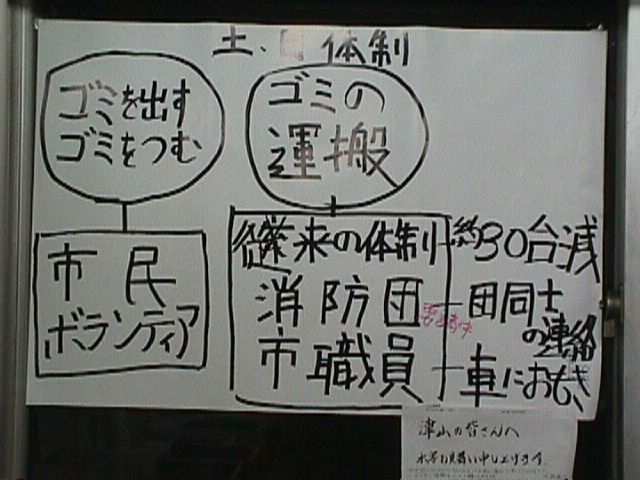 土、日体制
ゴミを出す
ゴミをつむ
ゴミの
運搬
市民
ボランティア
従来の体制
約30台減
消防団
団同士
の連絡
市職員
車におも
津山の皆さんへ
水害お見舞い申し上げます。